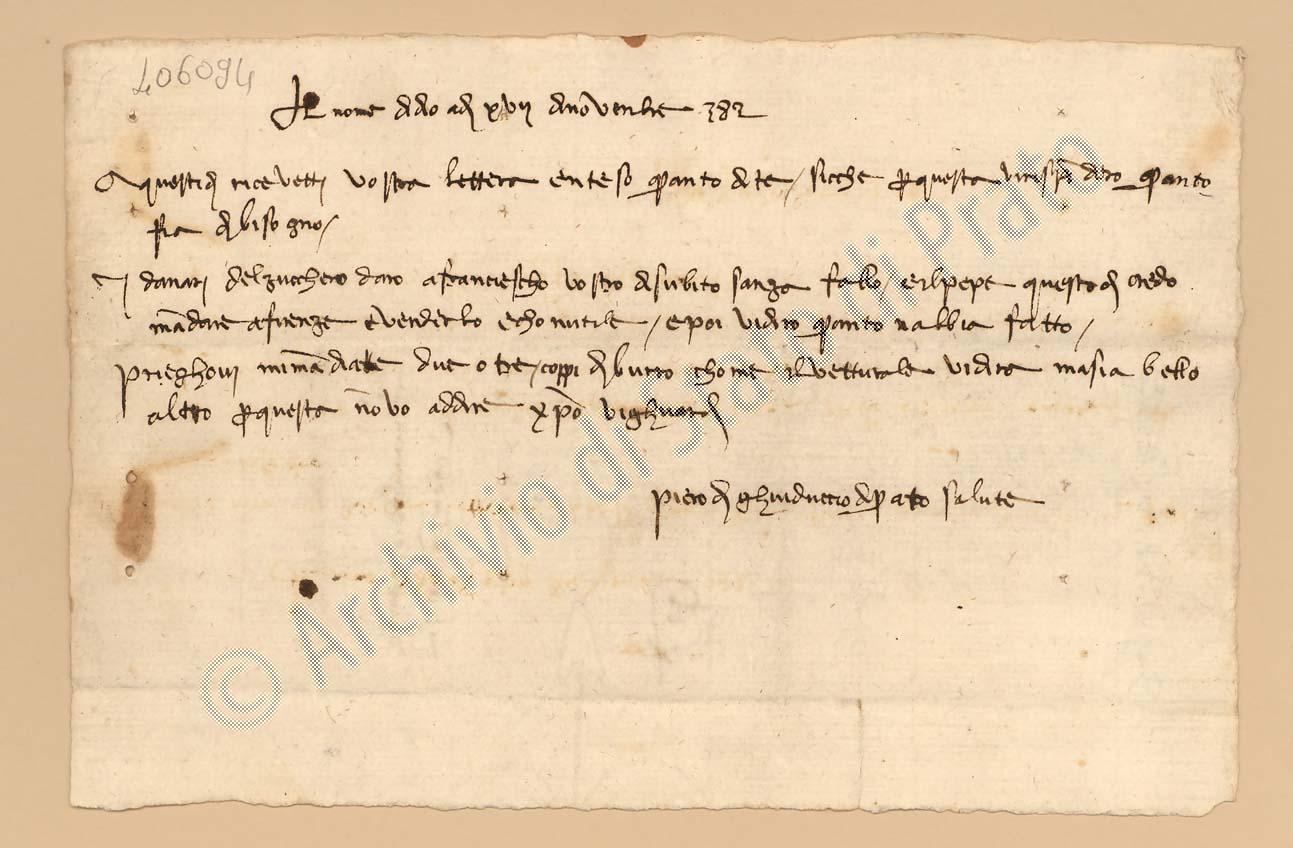 406094
Al nome di dio adì xvii di novenbre 382
A questi dì ricevetti vostra lettera e nteso quanto dite / sicché per questa vi rispondero quanto
fia di bisogno /
I danari del zucchero daro a francischo vostro di subito sanza fallo / e 'l pepe questo dì credo
mandare a firenze e venderlo e cho nutile / e poi vi diro quanto n abbia fatto /
Prieghovi mi mandiate due o tre coppi di burro chome il vetturale vi dira ma sia bello
altro per questa non vo a ddire Cristo vi ghuardi
piero di ghuiduccio di prato salute
© Archivio di Stato di Prato